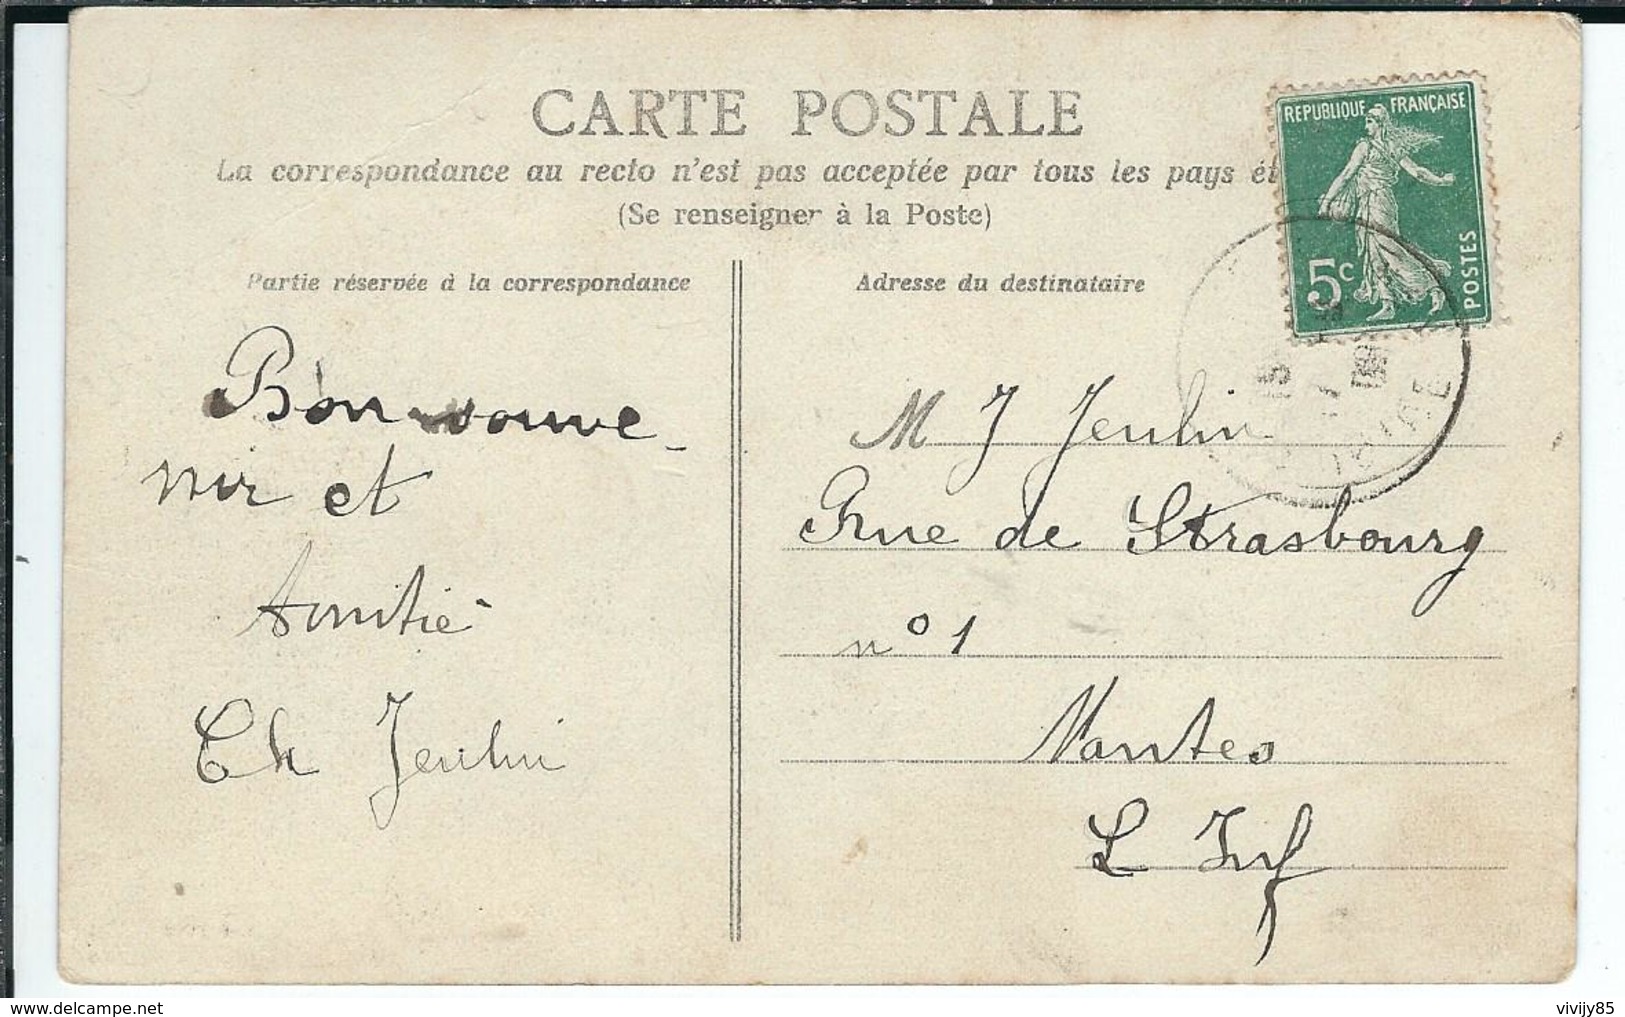 CARTE POSTALE
La correspondance au recto n'est pas acceptée par tous les pays ét
(Se renseigner à la Poste)
REPUBLIQUE FRANÇAISE
5c
POSTES
Partie réservée à la correspondance
Adresse du destinataire
Bon souve-
nir et
Amitié
Ch Jeulin
M J Jeulin
Rue de Strasbourg
n° 1
Nantes
L Inf
vivijy85